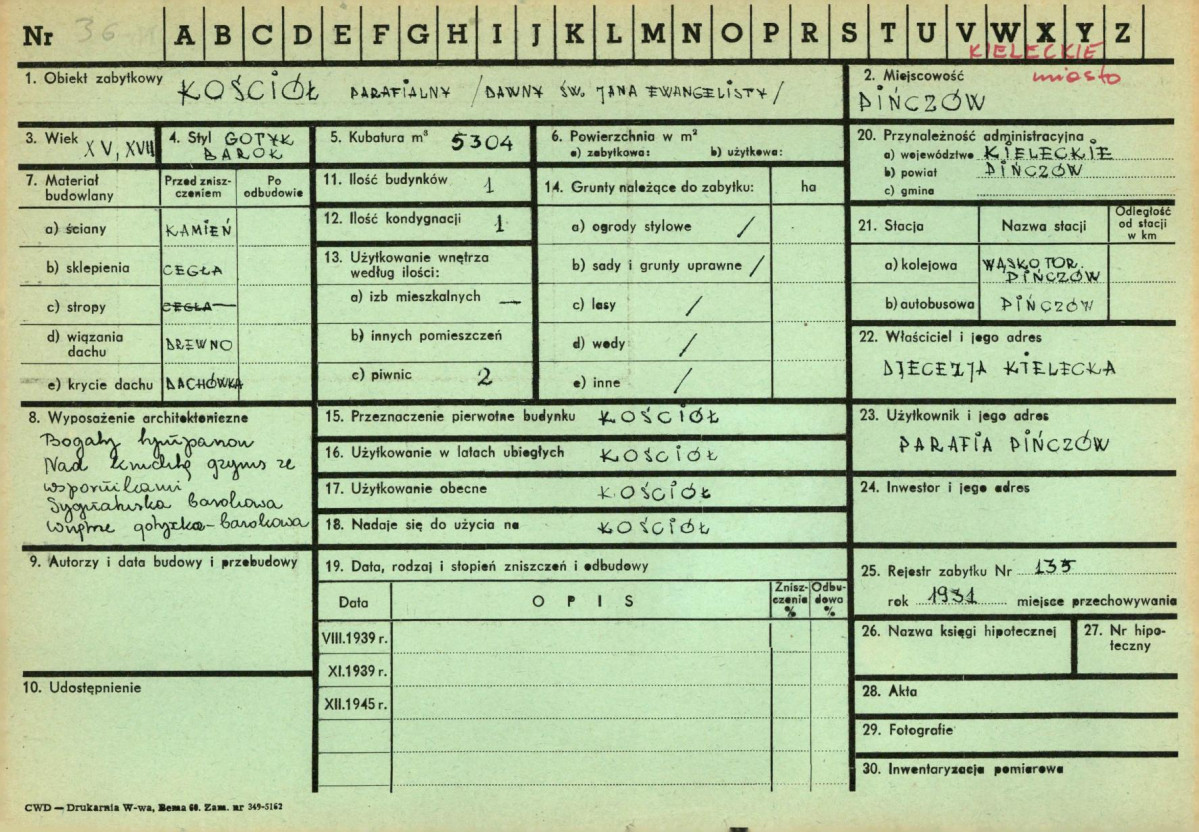 Nr 36 A B C D E F G H I J K L M N O P R S T U V W X Y Z
KIELECKIE
miasto
1. Obiekt zabytkowy KOŚCIÓŁ PARAFIALNY /DAWNY ŚW. JANA EWANGELISTY/
2. Miejscowość
PIŃCZÓW
3. Wiek XV, XVII
4. Styl GOTYK
BAROK
5. Kubatura m³ 5304
6. Powierzchnia w m²
a) zabytkowa: b) użytkowa:
20. Przynależność administracyjna
a) województwo KIELECKIE
b) powiat PIŃCZÓW
c) gmina
7. Materiał budowlany
Przed zniszczeniem
Po odbudowie
a) ściany KAMIEŃ
b) sklepienia CEGŁA
c) stropy CEGŁA
d) wiązania dachu DREWNO
e) krycie dachu DACHÓWKA
11. Ilość budynków 1
12. Ilość kondygnacji 1
13. Użytkowanie wnętrza
według ilości:
a) izb mieszkalnych —
b) innych pomieszczeń
c) piwnic 2
14. Grunty należące do zabytku: ha
a) ogrody stylowe /
b) sady i grunty uprawne /
c) lasy /
d) wody /
e) inne /
21. Stacja
Nazwa stacji
Odległość
od stacji
w km
a) kolejowa WĄSKOTOR.
PIŃCZÓW
b) autobusowa PIŃCZÓW
22. Właściciel i jego adres
DIECEZJA KIELECKA
8. Wyposażenie architektoniczne
Bogaty tympanon
Nad kruchtą gzyms ze
wspornikami
Sygnaturka barokowa
Wnętrze gotycko-barokowa
15. Przeznaczenie pierwotne budynku KOŚCIÓŁ
16. Użytkowanie w latach ubiegłych KOŚCIÓŁ
17. Użytkowanie obecne KOŚCIÓŁ
18. Nadaje się do użycia na KOŚCIÓŁ
23. Użytkownik i jego adres
PARAFIA PIŃCZÓW
24. Inwestor i jego adres
9. Autorzy i data budowy i przebudowy
19. Data, rodzaj i stopień zniszczeń i odbudowy
Data
OPIS
Znisz-
czenia
%
Odbu-
dowa
%
VIII.1939 r.
XI.1939 r.
XII.1945 r.
25. Rejestr zabytku Nr 135
rok 1931 miejsce przechowywania
26. Nazwa księgi hipotecznej
27. Nr hipo-
teczny
10. Udostępnienie
28. Akta
29. Fotografie
30. Inwentaryzacja pomiarowa
CWD — Drukarnia W-wa, Bema 60. Zam. nr 349-5162